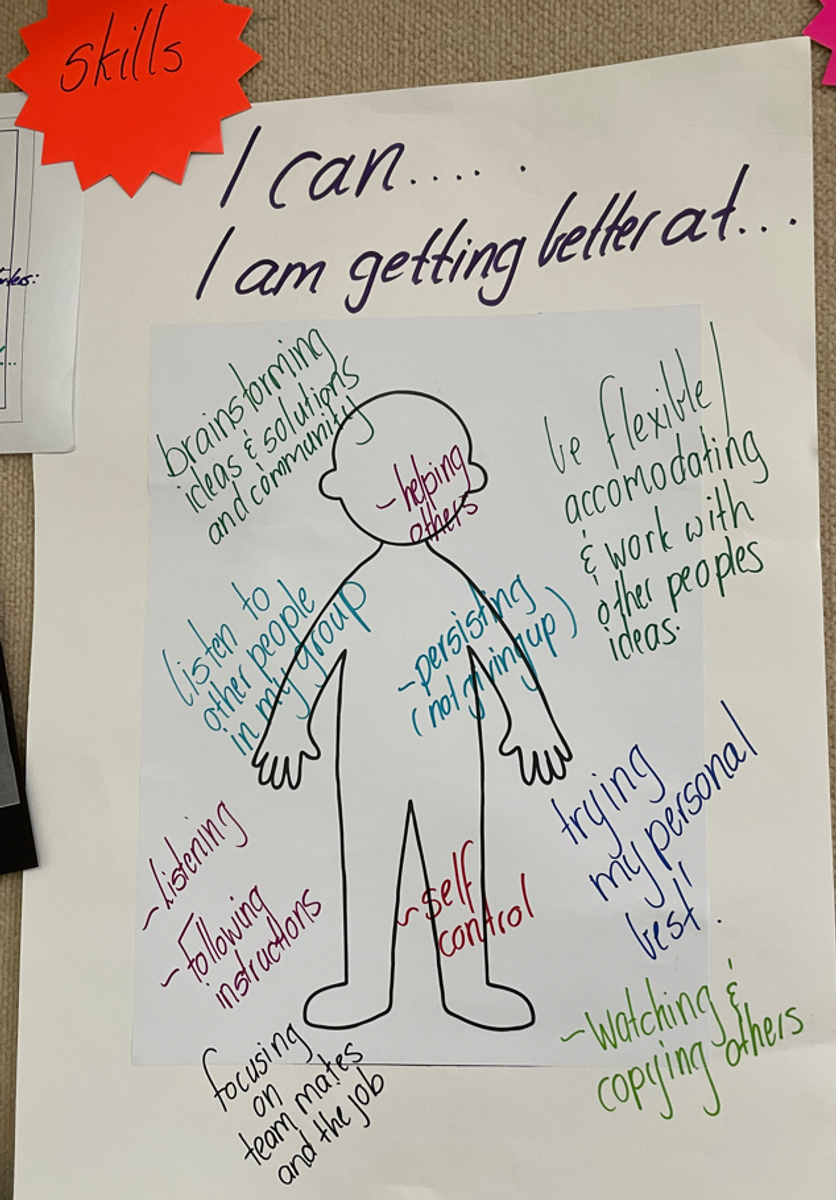 skills
I can.... .
I am getting better at...
brainstorming
ideas & solutions
and community
- helping
others
be flexible/
accomodating
& work with
other peoples
ideas.
listen to
other people
in my group
- persisting
(not giving up)
trying
my personal
best'.
- Listening
- Following
instructions
- self
control
focusing
on
team mates
and the job
- Watching &
copying others